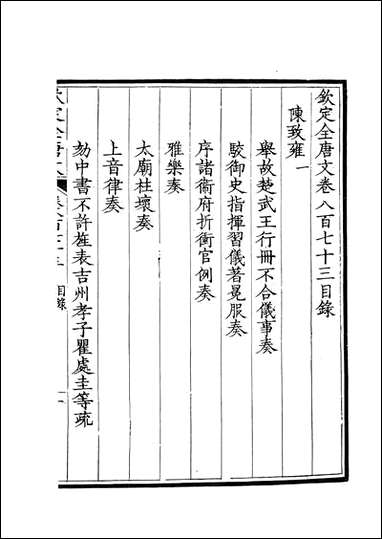 欽定全唐文卷八百七十三目錄
陳致雍一
舉故楚武王行冊不合儀事奏
駮御史指揮習儀著冕服奏
序諸衞府折衝官例奏
雅樂奏
太廟柱壞奏
上音律奏
劾中書不許旌表吉州孝子瞿處圭等疏
目錄
一